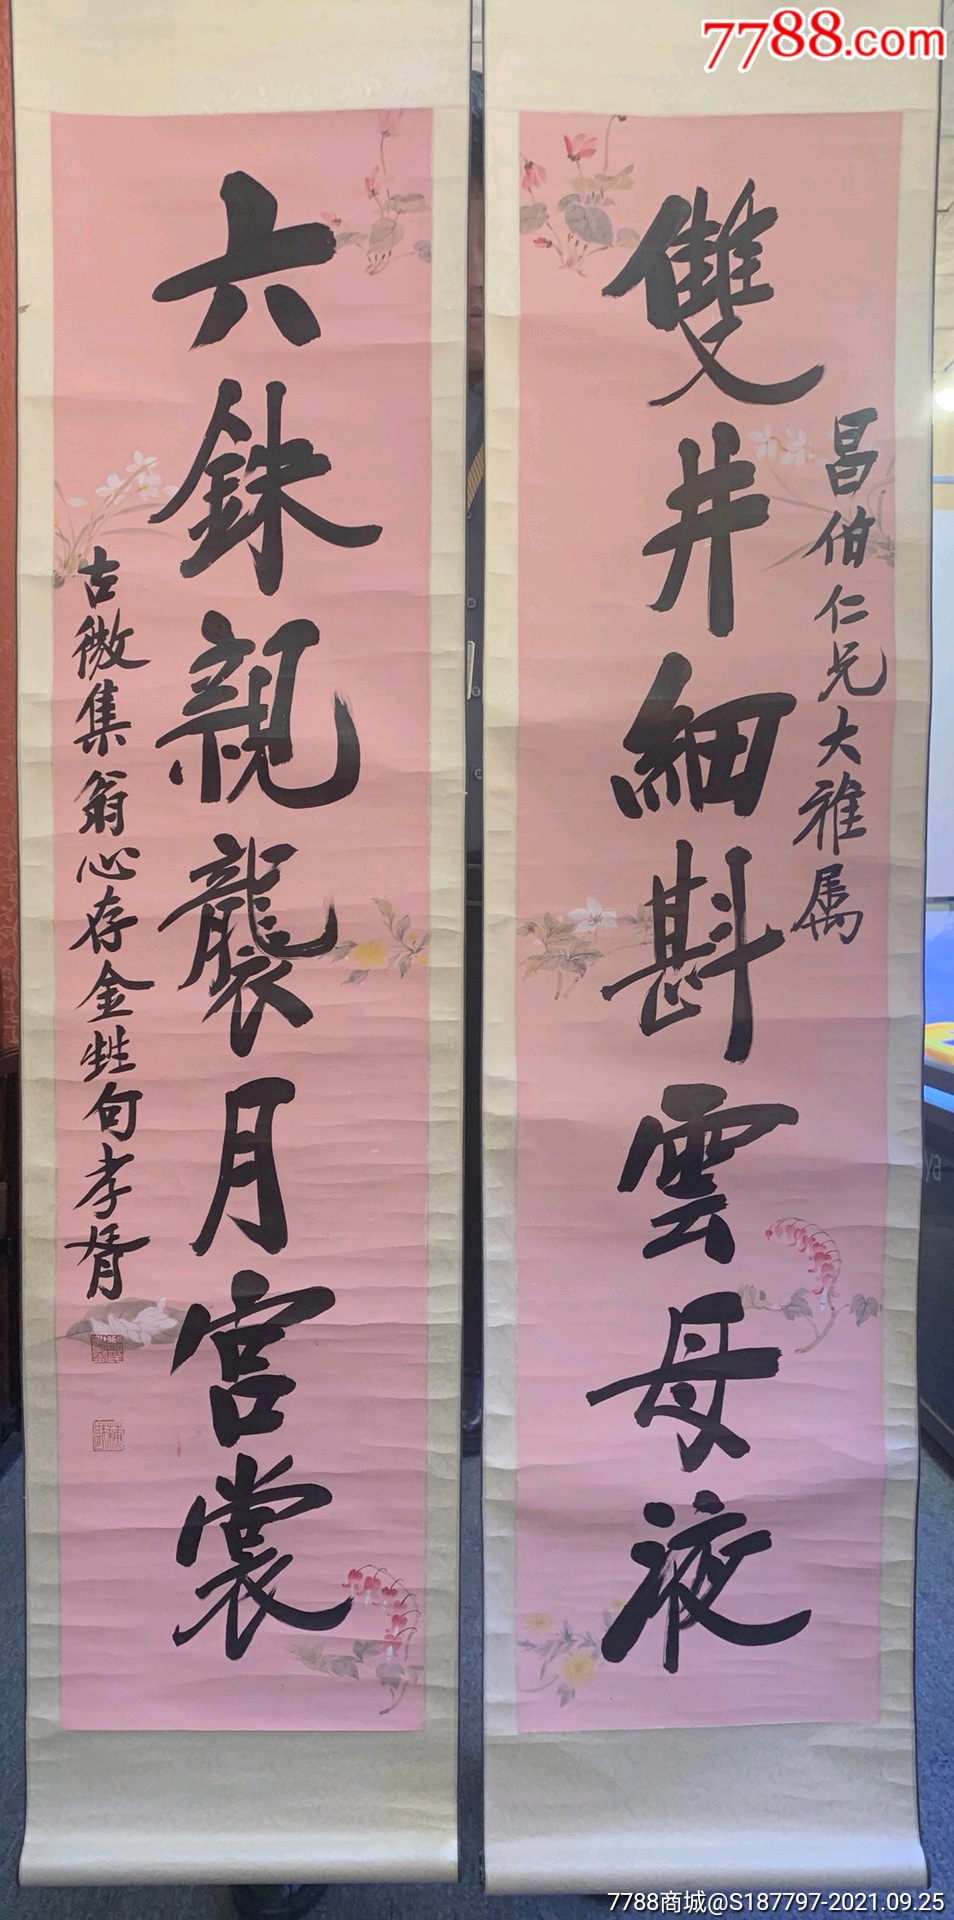 7788.com
雙井細斟雲母液
昌伯仁兄大雅属
六銖親襲月宮裳
古微集翁心存金甡句孝胥
7788商城@S187797-2021.09.25